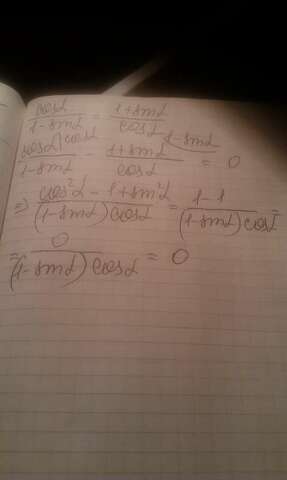 cosα/(1-sinα) = (1+sinα)/cosα
cosα\cosα/(1-sinα) - (1+sinα\1-sinα)/cosα = 0
⇒ (cos²α - 1 + sin²α)/((1-sinα)cosα) = (1-1)/((1-sinα)cosα) =
= 0/((1-sinα)cosα) = 0